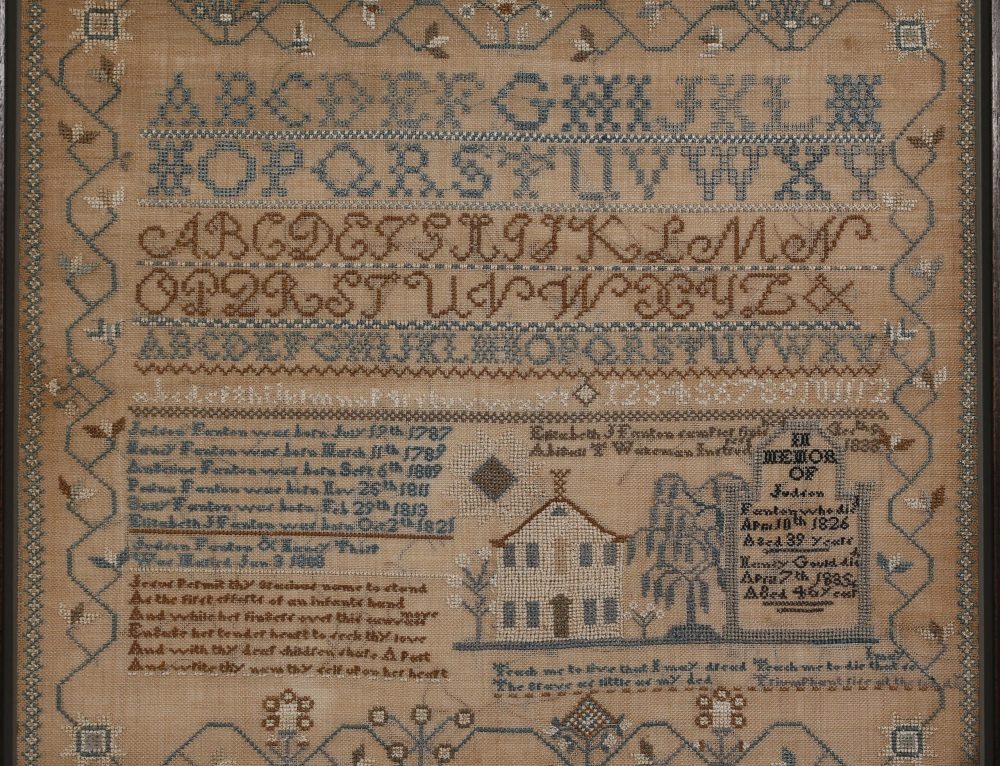 ABCDEFGHIJKLM
NOPQRSTUVWXY
ABCDEFGHIJKLMN
OPQRSTUVWXYZ&
ABCDEFGHIJKLMNOPQRSTUVWXY
1 2 3 4 5 6 7 8 9 10 11 12
Judson Fanton was born July 19th 1787
was born March 11th 1789
Fanton was born Sept 6th 1809
Fanton was born Nov 25th 1811
Fanton was born Feb 29th 1813
Elizabeth J Fanton was born Oct 2th 1821
Judson Fanton & Thist
Was Jan 3 1808
Jesus Permit thy Gracious name to stand
As the first efforts of an infants hand
And while her fingers over this canvas move
Engage her tender heart to seek thy love
And with thy dear children share A Part
And write thy nam thy self upon her heart
Elizabeth J Fanton
Abigail T Wakeman
IN
MEMOR
OF
Judson
Fanton who died
April 10th 1826
Aged 39 years
Gould
April 7th 1835
Aged 46 year
Teach me to live that I may dread
The grave as little as my bed
Teach me to die that so I may
Triumphant rise at the